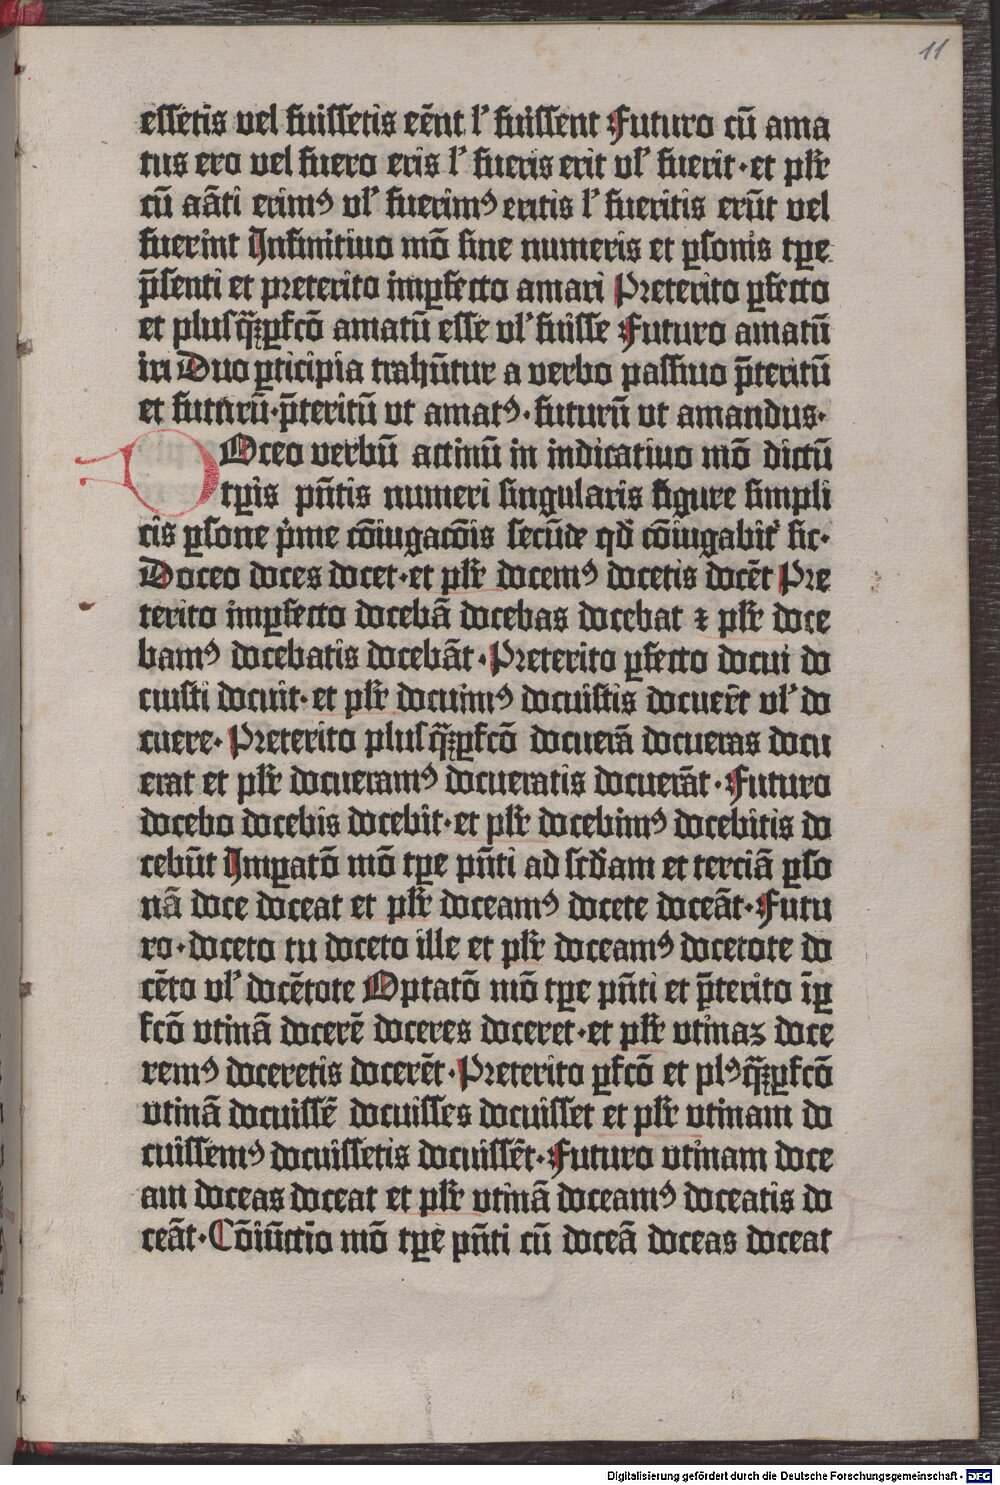 11
essetis vel fuissetis eēnt lʼ fuissent Futuro cū ama
tus ero vel fuero eris lʼ fueris erit vlʼ fuerit·et plr̄
cū aāti erimꝰ vlʼ fuerimꝰ eritis lʼ fueritis erūt vel
fuerint Infinitiuo mō sine numeris et ꝑsonis tꝑe
p̄senti et preterito imꝑfecto amari Preterito ꝑfecto
et plusq̄ꝫꝑfcō amatū esse vlʼ fuisse Futuro amatū
iri Duo ꝑticipia trahūtur a verbo passiuo p̄teritū
et futurū·p̄teritū vt amatꝰ·futurū vt amandus·
DOceo verbū actiuū in indicatiuo mō dictū
tꝑis pn̄tis numeri singularis figure simpli
cis ꝑsone pʼme cōiugacōis secūde qd̄ cōiugabitʼ sic·
Doceo doces docet·et plr̄ docemꝰ docetis docēt Pre
terito imꝑfecto docebā docebas docebat ⁊ plr̄ doce
bamꝰ docebatis docebāt·Preterito ꝑfecto docui do
cuisti docuit·et plr̄ docuimꝰ docuistis docuerūt vlʼ do
cuere·Preterito plusq̄ꝫꝑfcō docuerā docueras docu
erat et plr̄ docueramꝰ docueratis docuerāt·Futuro
docebo docebis docebit·et plr̄ docebimꝰ docebitis do
cebūt Imꝑatō mō tꝑe pn̄ti ad scd̄am et terciā ꝑso
nā doce doceat et plr̄ doceamꝰ docete doceāt·Futu
ro·doceto tu doceto ille et plr̄ doceamꝰ docetote do
cēto vlʼ docētote Optatō mō tꝑe pn̄ti et p̄terito īꝑ
fcō vtinā docerē doceres doceret·et plr̄ vtinaꝫ doce
remꝰ doceretis docerēt·Preterito ꝑfcō et plꝰq̄ꝫꝑfcō
vtinā docuissē docuisses docuisset et plr̄ vtinam do
cuissemꝰ docuissetis docuissēt·Futuro vtinam doce
am doceas doceat et plr̄ vtinā doceamꝰ doceatis do
ceāt·Cōiūctīo mō tꝑe pn̄ti cū doceā doceas doceat
Digitalisierung gefördert durch die Deutsche Forschungsgemeinschaft - DFG